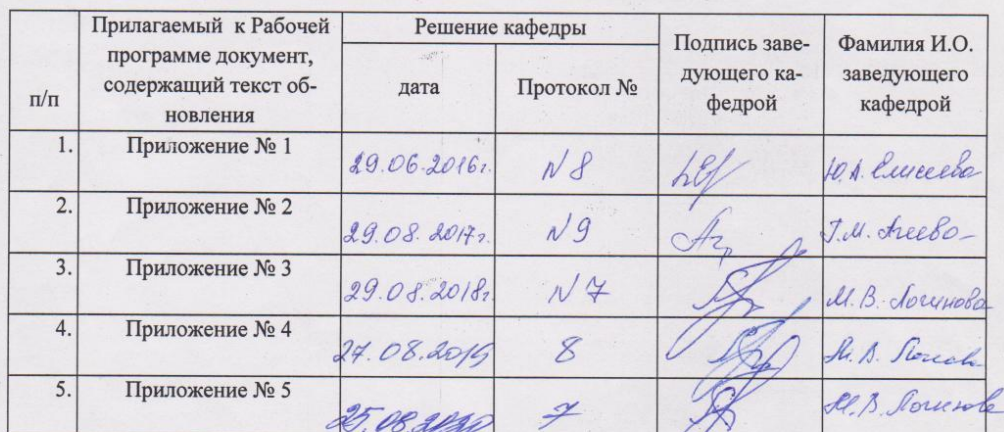 п/п
Прилагаемый к Рабочей
программе документ,
содержащий текст об-
новления
Решение кафедры
дата
Протокол №
Подпись заве-
дующего ка-
федрой
Фамилия И.О.
заведующего
кафедрой
1. Приложение № 1 29.06.2016г. N 8 Ю.А. Елисеева
2. Приложение № 2 29.08.2017г. N 9 Г.М. Агеева
3. Приложение № 3 29.08.2018г. N 7 М.В. Логинова
4. Приложение № 4 27.08.2019 8 М.В. Логинова
5. Приложение № 5 25.08.2020 7 М.В. Логинова